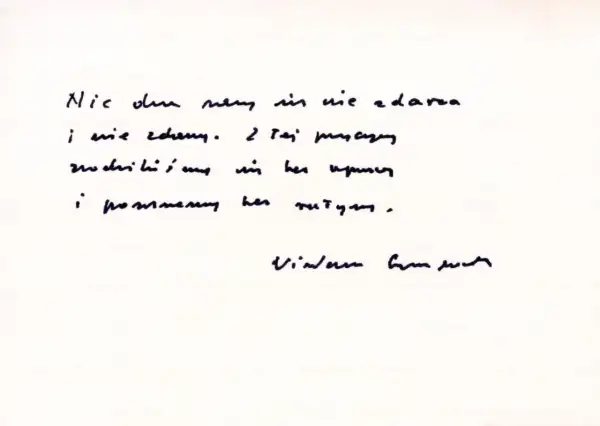 Nic dwa razy się nie zdarza
i nie zdarzy. Z tej przyczyny
zrodziliśmy się bez wprawy
i pomrzemy bez rutyny.
Wisława Szymborska